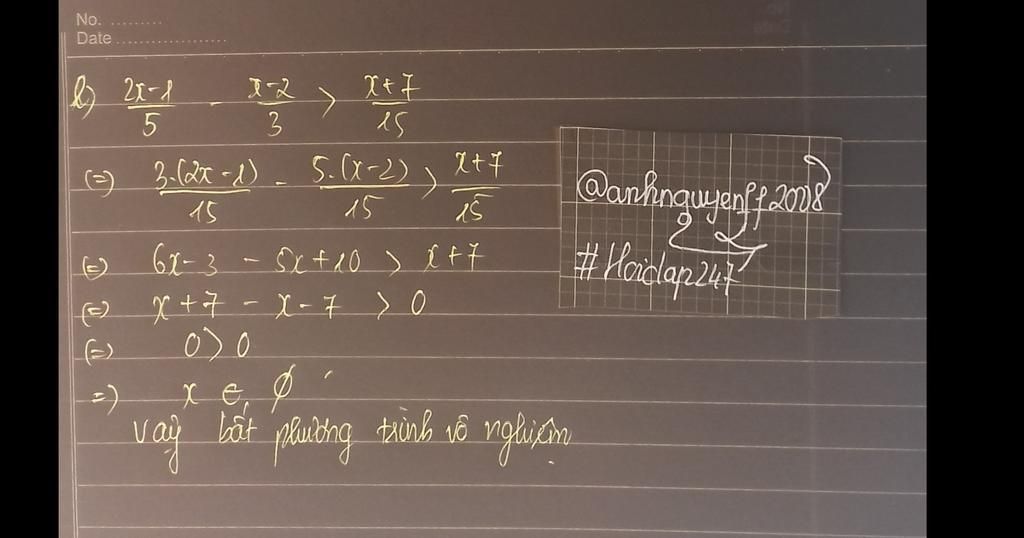 No. .........
Date ..................
b) (2x-1)/5 - (x-2)/3 > (x+7)/15
(=) 3.(2x-1)/15 - 5.(x-2)/15 > (x+7)/15
(=) 6x-3 - 5x+10 > x+7
(=) x+7 - x-7 > 0
(=) 0 > 0
=) x ∈ ∅
Vậy bất phương trình vô nghiệm
@anhnguyenff2008
#Hoidap247